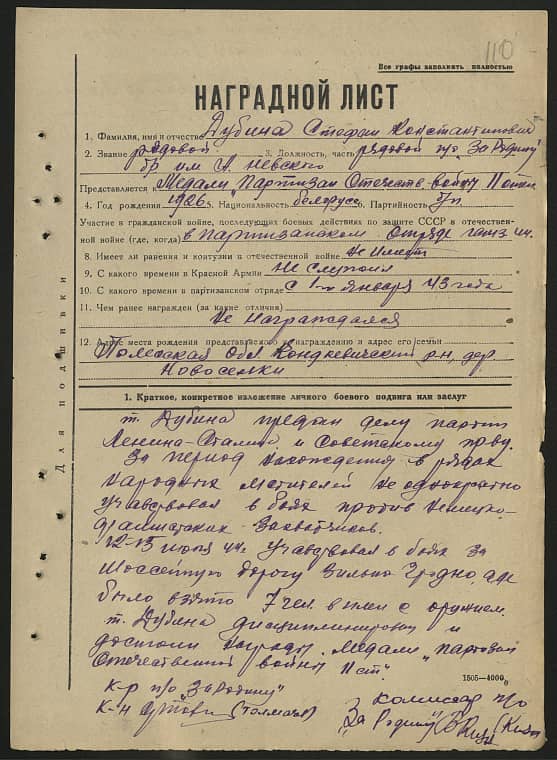 110
Все графы заполнять полностью
НАГРАДНОЙ ЛИСТ
1. Фамилия, имя и отчество Дубина Стефан Константинович
2. Звание рядовой 3. Должность, часть рядовой п/о "За Родину"
бр им А. Невского
Представляется к Медали "Партизан Отечеств. войны II степ.
4. Год рождения 1926 5. Национальность белорус 6. Партийность б/п
Участие в гражданской войне, последующих боевых действиях по защите СССР в отечествен-
ной войне (где, когда) в партизанском отряде
8. Имеет ли ранения и контузии в отечественной войне не имеет
9. С какого времени в Красной Армии Не служил
10. С какого времени в партизанском отряде с 1-го января 43 года
11. Чем ранее награжден (за какие отличия)
Не награждался
12. Адрес места рождения представляемого к награждению и адрес его семьи
Полесская обл. р-н, дер.
Новоселки
1. Краткое, конкретное изложение личного боевого подвига или заслуг
т. Дубина предан делу партии
Ленина-Сталина и Советскому пр-ву.
За период нахождения в рядах
народных мстителей неоднократно
участвовал в боях против немецко-
фашистских захватчиков.
12-13 июля 44г. участвовал в боях за
шоссейную дорогу Вильно Гродно, где
было взято 7 чел. в плен с оружием.
т. Дубина дисциплинирован и
достоин награды медали "партизан
Отечественной войны II ст."
1505—4000
к-р п/о "За Родину"
к-н
комиссар п/о
"За Родину"
Для подшивки